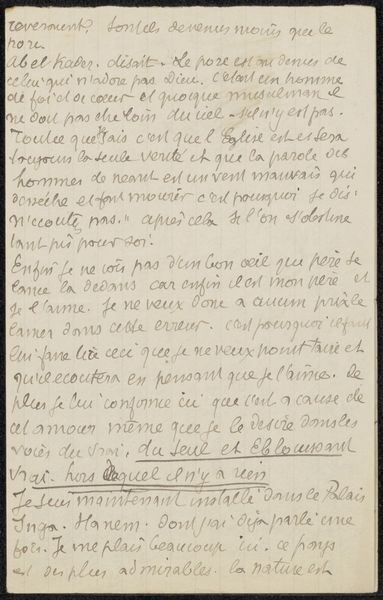 reverront, sont ils devenus moins que le
porc.
Abel Kader. disait. Le porc est au dessus de
celui qui n'adore pas Dieu. C'était un homme
de foi et de cœur et quoique musulman il
ne doit pas être loin du ciel - s'il n'y est pas.
Tout ce que sais c'est que l'Eglise est et sera
toujours la seule verité et que la parole des
hommes de neant est un vent mauvais qui
desseche et fait mourir c'est pourquoi je dis:
n'ecoutez pas." après cela si l'on s'obstine
tant pis pour soi!
Enfin je ne vois pas d'un bon oeil que père se
lance la dedans car enfin il est mon père et
je l'aime. Je ne veux donc a aucun prix le
laisser dans cette erreur. c'est pourquoi il faut
lui faire lire ceci que je ne veux point taire et
qu'il ecoutera en pensant que je l'aime. De
plus je lui confirme ici que c'est a cause de
cet amour même que je le desire dans les
voies du vrai, du seul et Eblouissant
vrai. hors duquel il n'y a rien
Je suis maintenant installé dans le Palais
Inga. Hanem. dont j'ai deja parlé une
fois. Je me plais beaucoup ici. ce pays
est des plus admirables. la nature est